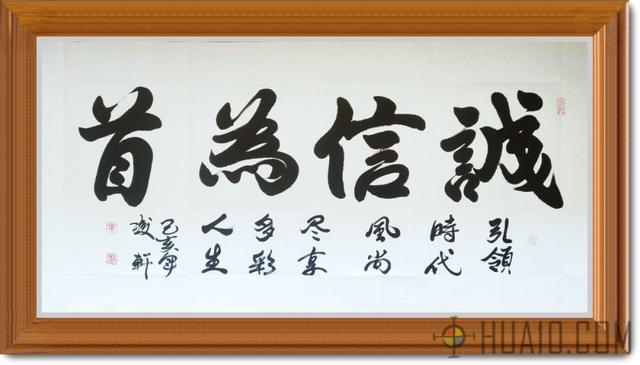 誠信為首
引領
時代
風尚
尽享
多彩
人生
己亥年
軒
HUA10.COM